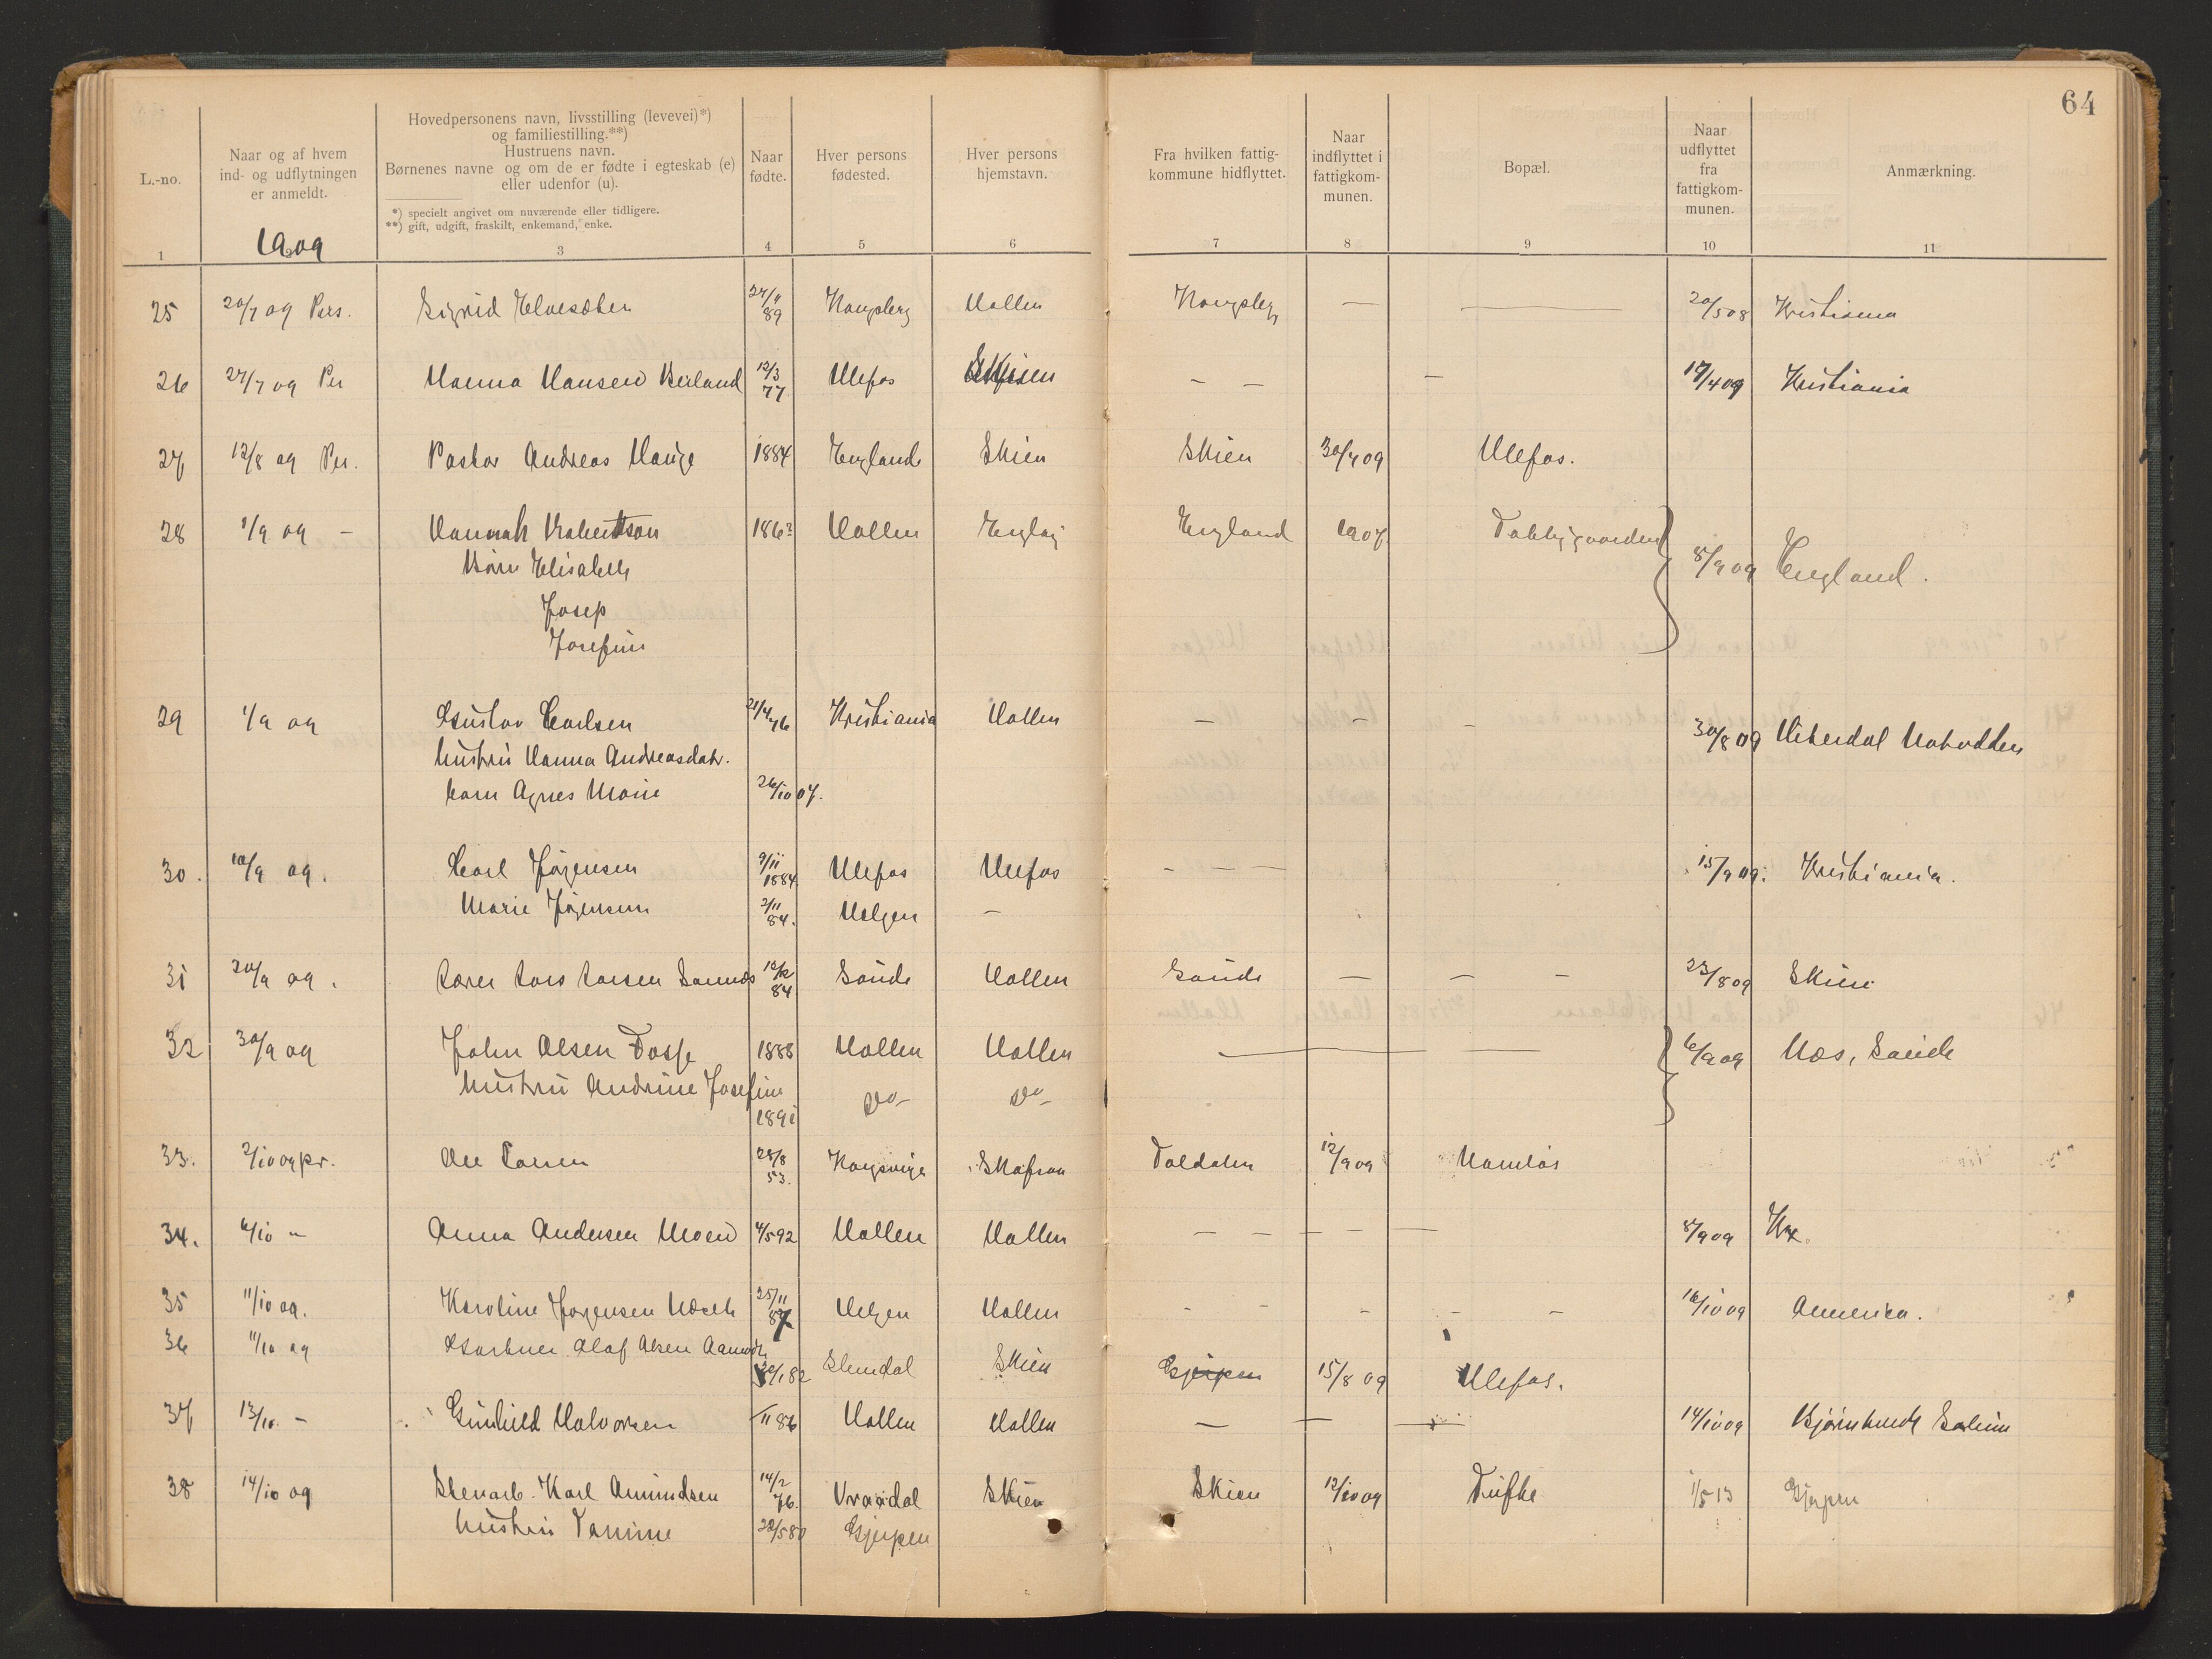 64
L.-no.
Naar og af hvem
ind- og udflytningen
er anmeldt.
Hovedpersonens navn, livsstilling (levevei)*)
og familiestilling.**)
Hustruens navn.
Børnenes navne og om de er fødte i egteskab (e)
eller udenfor (u).
*) specielt angivet om nuværende eller tidligere.
**) gift, udgift, fraskilt, enkemand, enke.
Naar
fødte.
Hver persons
fødested.
Hver persons
hjemstavn.
Fra hvilken fattig-
kommune hidflyttet.
Naar
indflyttet i
fattigkom-
munen.
Bopæl.
Naar
udflyttet
fra
fattigkom-
munen.
Anmærkning.
1909
1 2 3 4 5 6 7 8 9 10 11
25 20/7 09 Pers. Sigrid 24/11 89 Kongsberg Hollen Kongsberg — — 20/5 08 Kristiania
26 27/7 09 Per Hanna Hansen 12/3 77 Ulefos Skien — — — 17/4 09 Kristiania
27 12/8 09 Per. Pastor Andreas Hauge 1884 England Skien Skien 30/7 09 Ulefos.
28 1/9 09 — Hannah Robertson 1863 Hollen England England 1907 8/9 09 England.
Børn Elisabeth
Josep
Josefine
29 1/9 09 Gustav Carlsen 21/4 76 Kristiania Hollen — — — 30/8 09 Hiterdal Notodden
hustru Hanna Andreasdatr.
barn Agnes Marie 26/10 07.
30. 10/9 09. Carl Jørgensen 9/11 1884 Ulefos Ulefos — — — 15/9 09. Kristiania.
Marie Jørgensen 2/11 84. Helgen —
31 20/9 09. Lars Larsen 84 Saude Hollen Saude — — — 23/8 09 Skien
32 30/9 09 John Olsen 1888 Hollen Hollen — — 6/9 09 Næs, Saude
hustru Andrine Josefine
1891 do— do—
33. 2/10 09 pr. Ole Larsen 28/8 53. 12/9 09
34. 6/10 — Anna Andersen Moen 4/5 92 Hollen Hollen — — — — 8/9 09 Kra.
35 11/10 09. Karoline Jørgensen 25/11 87 Helgen Hollen — — — — — 16/10 09 Amerika.
36 11/10 09 Gartner Olaf Olsen
82 Slemdal Skien Gjerpen 15/8 09 Ulefos.
37 13/10 — Gunhild Halvorsen 11 86 Hollen Hollen — — — 14/10 09
38 14/10 09 Stenarb. Karl Amundsen 14/2 76. Vraadal Skien Skien 12/10 09 Tufte 1/5 13 Gjerpen
hustru 28/5 80 Gjerpen